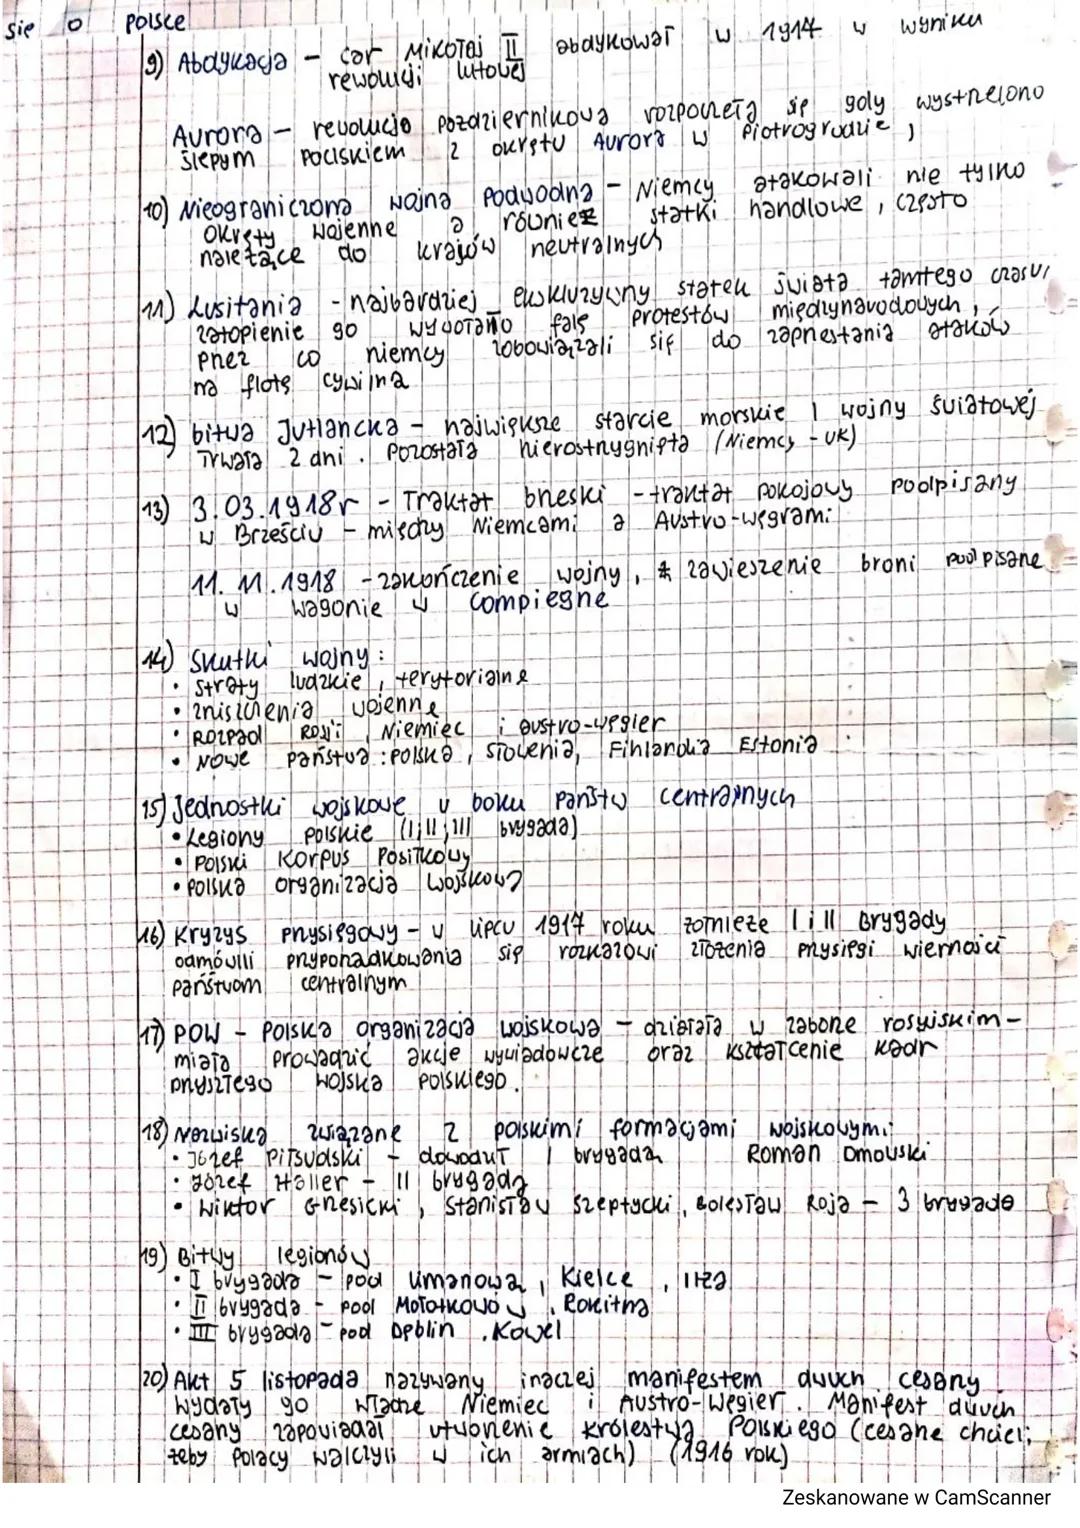 się o polsce
9) Abdykacja – car Mikołaj II abdykował w 1914 w wyniku
rewolucji lutowej
Aurora – rewolucja pozdziernikowa rozpoczeła się gdy wystrzelono
ślepym pociskiem z okrętu Aurora w Piotrogrodzie,
10) Nieograniczona wojna podwodna – Niemcy atakowali nie tylko
okręty wojenne a również statki handlowe, często
należące do krajów neutralnych
11) Lusitania - najbardziej ekskluzywny statek świata tamtego czasu,
zatopienie go wywołało falę protestów międzynarodowych,
przez co niemcy zobowiązali się do zaprzestania ataków
na flotę cywilną
12) bitwa Jutlancka – największe starcie morskie I wojny światowej
Trwała 2 dni. Pozostała nierostrzygnięta (Niemcy - UK)
13) 3.03.1918r - Traktat brzeski - traktat pokojowy podpisany
w Brześciu – między Niemcami a Austro-węgrami
11.11.1918 - zakończenie wojny, zawieszenie broni podpisane
w wagonie w Compiegne
14) Skutki wojny:
• straty ludzkie, terytorialne
• zniszczenia wojenne
• Rozpad Rosji, Niemiec i austro-węgier
• Nowe państwa: Polska, Słowenia, Finlandia Estonia
15) Jednostki wojskowe u boku Państw centralnych
• Legiony polskie (I, II, III brygada)
• Polski Korpus Posiłkowy
• Polska organizacja wojskowa
16) Kryzys przysięgowy – w lipcu 1917 roku żołnieże I i II Brygady
odmówili przyponadkowania się rozkazowi złożenia przysięgi wierności
państwom centralnym
17) POW – Polska organizacja wojskowa – działała w zaborze rosyjskim –
miała prowadzić akcje wywiadowcze oraz kształcenie kadr
przyszłego wojska polskiego.
18) Nazwiska związane z polskimi formacjami wojskowymi
• Józef Piłsudski – dowodził I brygadą Roman Dmowski
• Józef Haller – II brygada
• Wiktor Grzesicki, Stanisław Szeptycki, Bolesław Roja – 3 brygada
19) Bitwy legionów
• I brygada – pod Limanową, Kielce, Iłża
• II brygada – pod Mołotkowo, Rokitna
• III brygada – pod Dęblin, Kowel
20) Akt 5 listopada nazywany inaczej manifestem dwuch cesarzy
Wydały go władze Niemiec i Austro-Węgier. Manifest dwuch
cesarzy zapowiadał utworzenie królestwa Polskiego (cesarze chcieli,
żeby Polacy walczyli w ich armiach) (1916 rok)
Zeskanowane w CamScanner